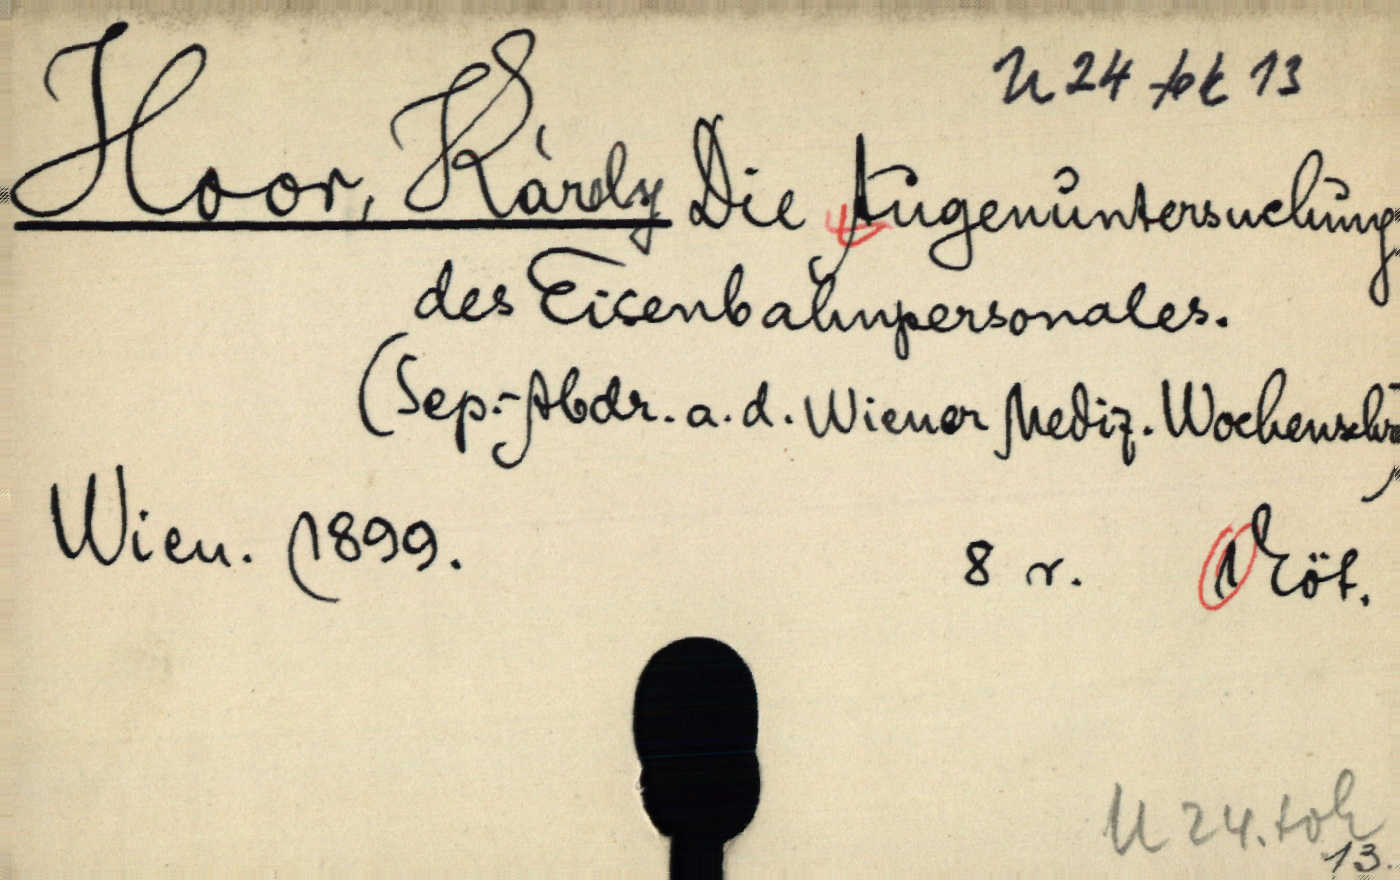 U 24 tok 13
Hoor, Károly Die Augenuntersuchung
des Eisenbahnpersonales.
(Sep.-Abdr. a. d. Wiener Mediz. Wochenschr
)
Wien. 1899. 8 r. 1 Köt.
U 24. tok
13.